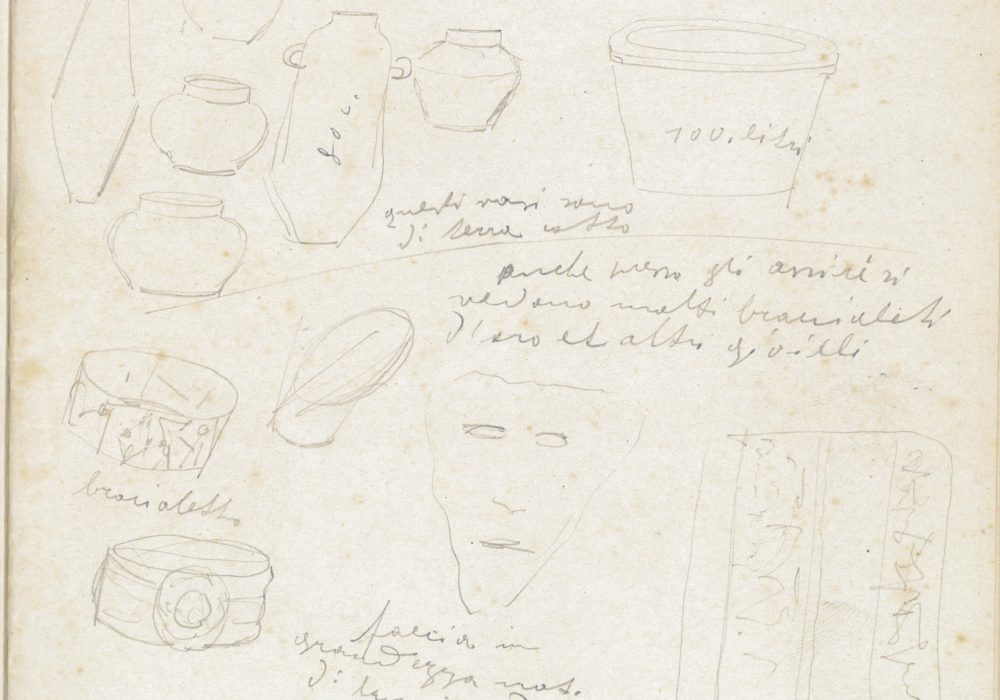 80 c.
100. litri
questi vasi sono
di terra cotto
anche presso gli assiri si
vedono molti braccialetti
d'oro et altri gioielli
bracialetto
faccia in
grandezza nat.
di